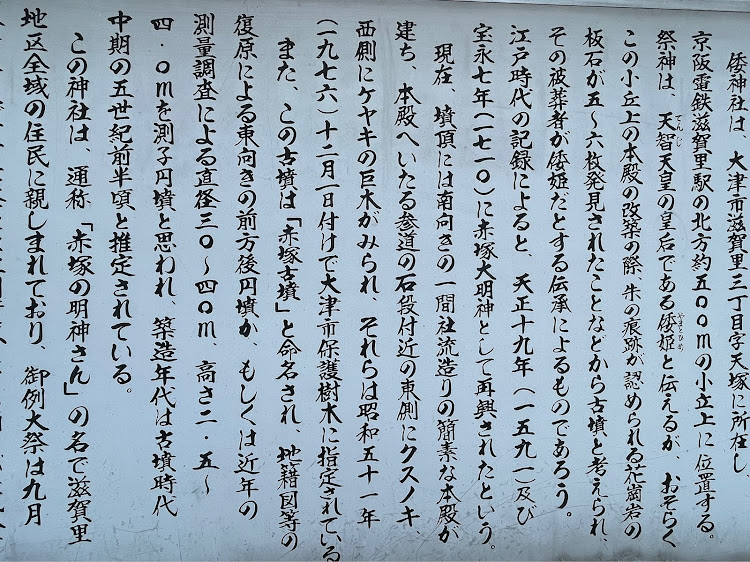 倭神社は、大津市滋賀里三丁目字天塚に所在し
京阪電鉄滋賀里駅の北方約五〇〇mの小丘上に位置する。
祭神は、天智天皇の皇后である倭姫と伝えるが、おそらく
てんじ
やまとひめ
この小丘上の本殿の改築の際、朱の痕跡が認められる花崗岩の
板石が五～六枚発見されたことなどから古墳と考えられ、
その被葬者が倭姫だとする伝承によるものであろう。
江戸時代の記録によると、天正十九年（一五九一）及び
宝永七年（一七一〇）に赤塚大明神として再興されたという。
現在、墳頂には南向きの一間社流造りの簡素な本殿が
建ち、本殿へいたる参道の石段付近の東側にクスノキ、
西側にケヤキの巨木がみられ、それらは昭和五十一年
（一九七六）十二月一日付けで大津市保護樹木に指定されている
また、この古墳は「赤塚古墳」と命名され、地籍図等の
復原による東向きの前方後円墳か、もしくは近年の
測量調査による直径三〇～四〇m、高さ二・五～
四・〇mを測る円墳と思われ、築造年代は古墳時代
中期の五世紀前半頃と推定されている。
この神社は、通称「赤塚の明神さん」の名で滋賀里
地区全域の住民に親しまれており、御例大祭は九月